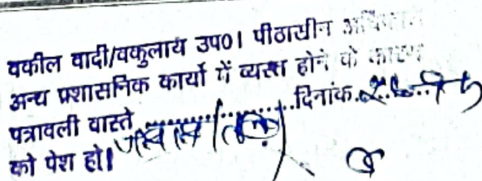 वकील वादी/वकुलाय उप०। पीठासीन अधिकारी
अन्य प्रशासनिक कार्यो में व्यस्त होने के कारण
पत्रावली वास्ते ................ दिनांक
को पेश हो।